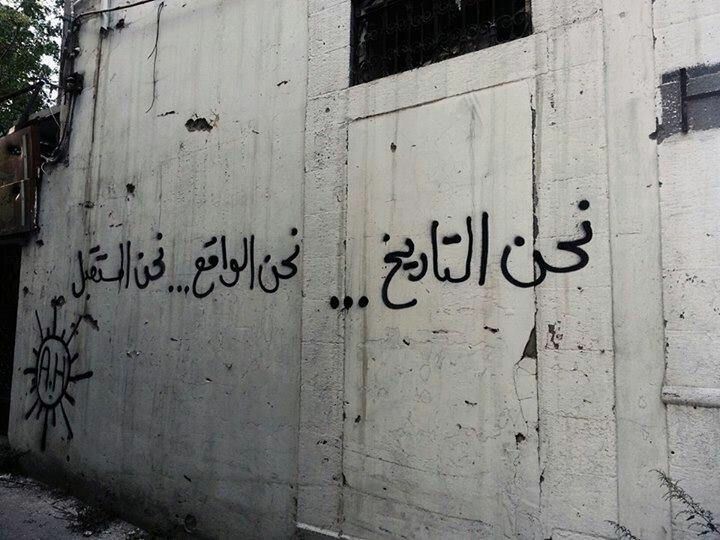 نحن التاريخ... نحن الواقع... نحن المستقبل
A.H